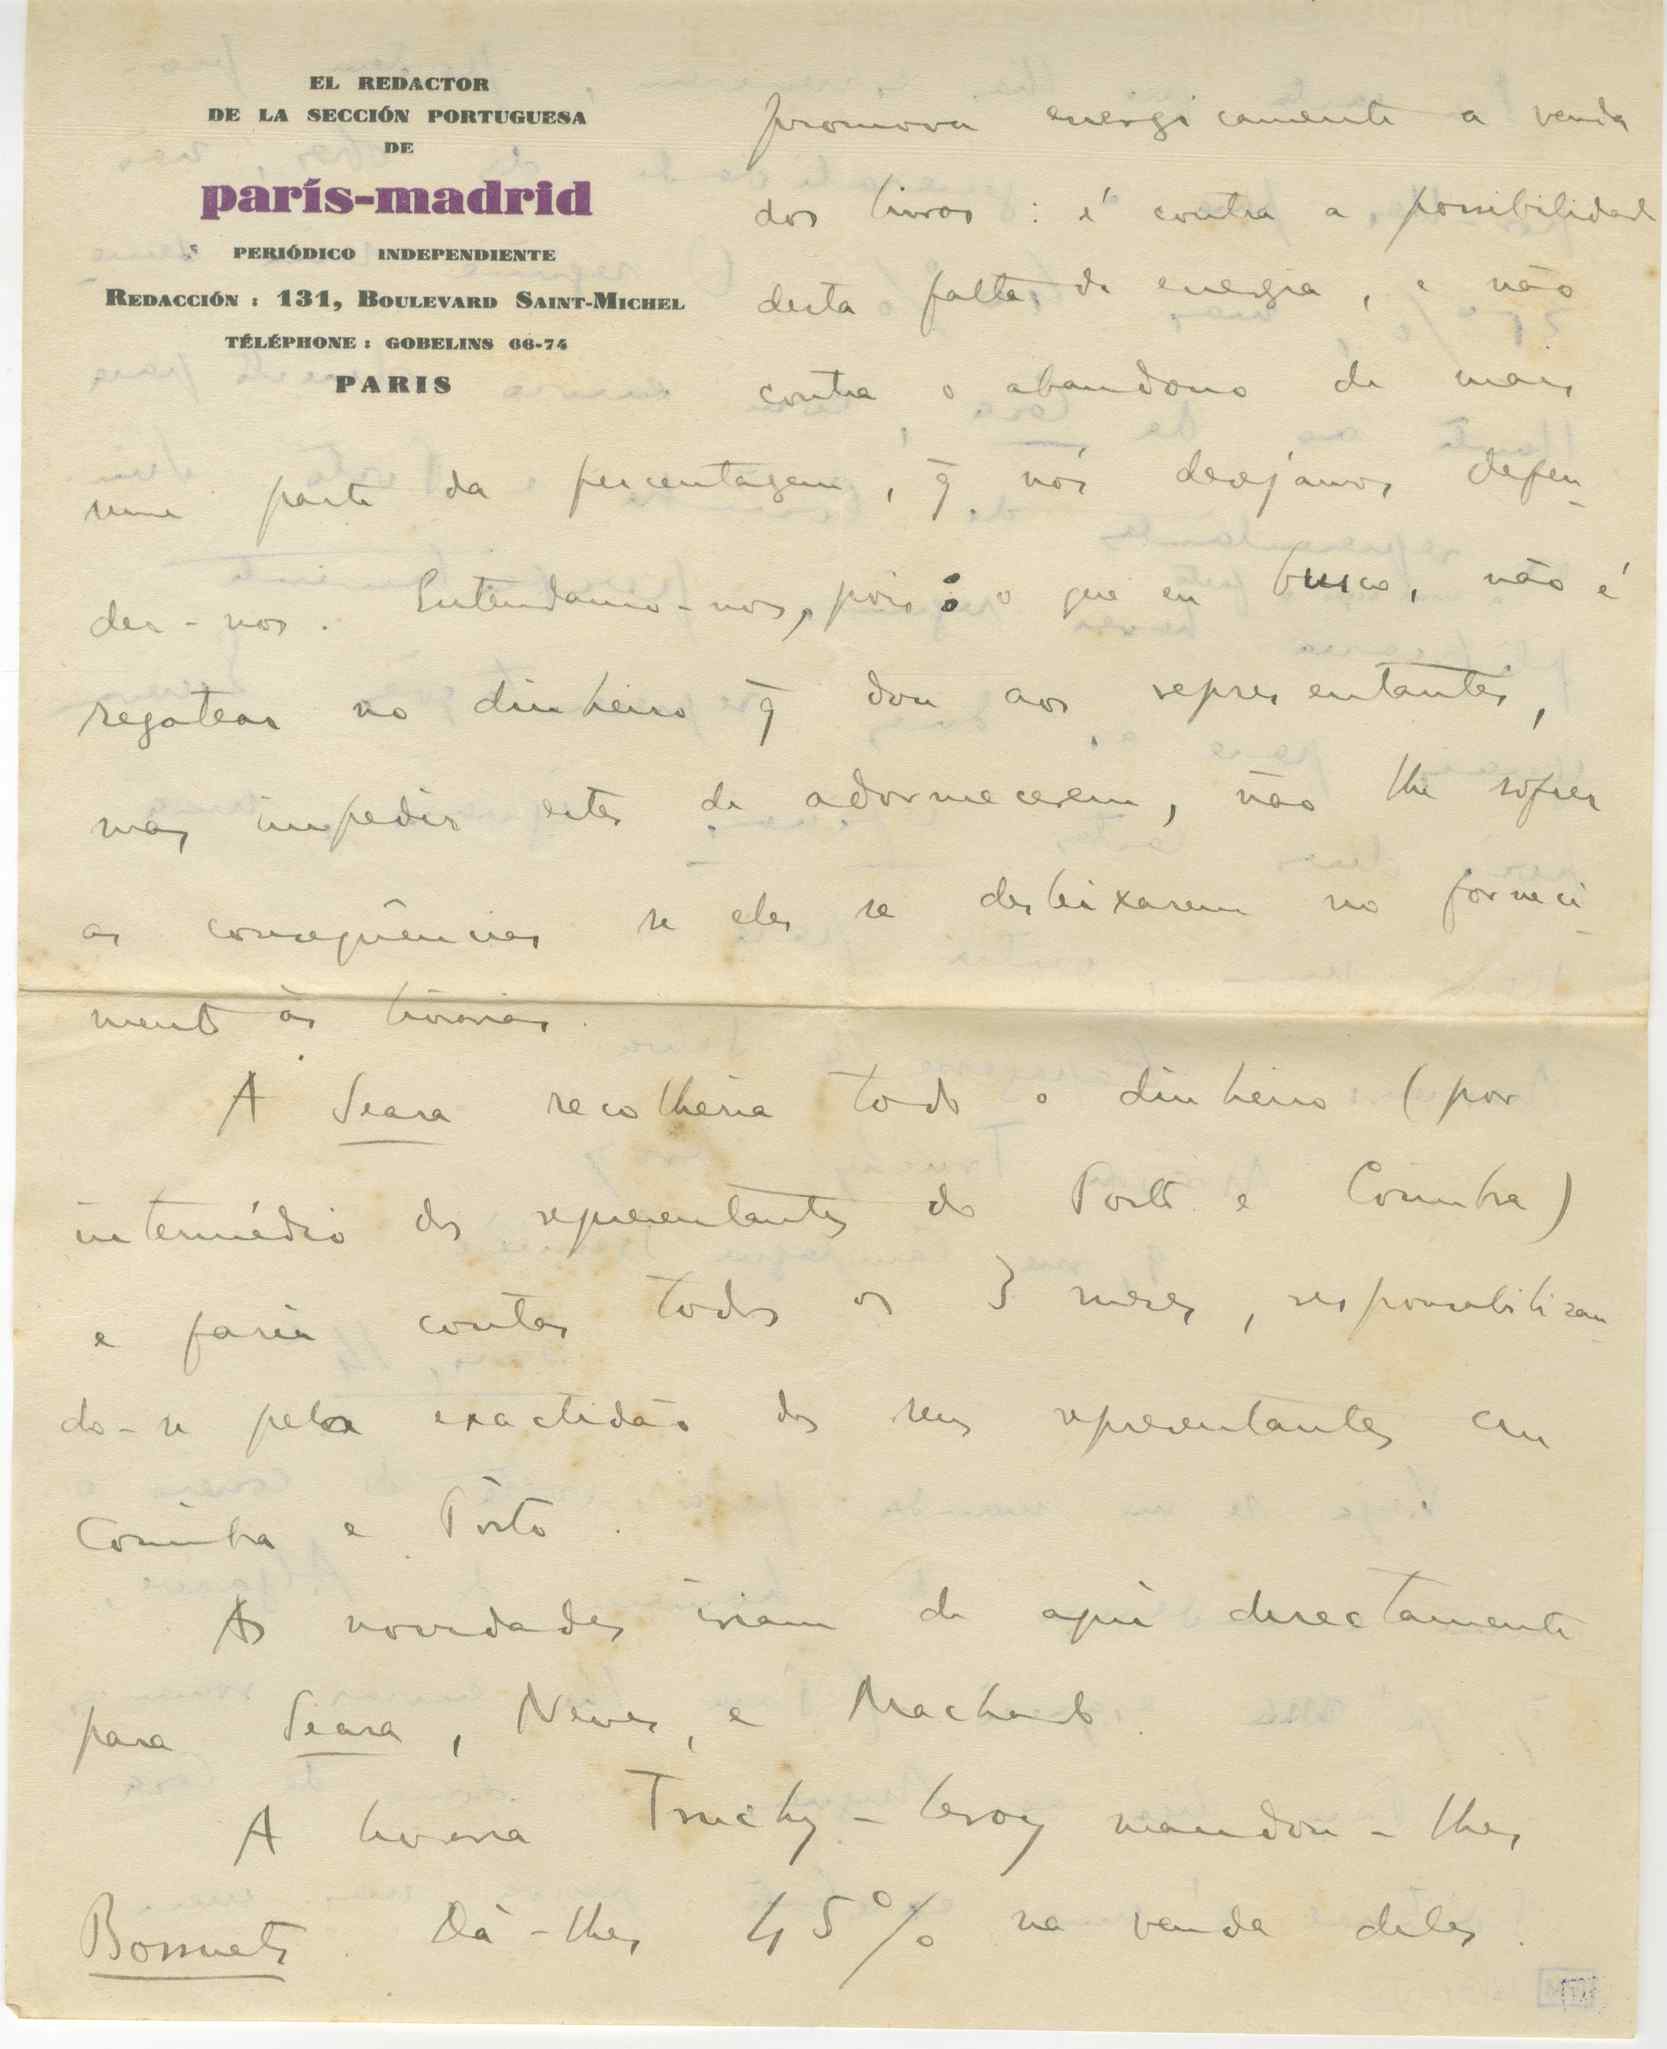 EL REDACTOR
DE LA SECCIÓN PORTUGUESA
DE
parís-madrid
PERIÓDICO INDEPENDIENTE
REDACCIÓN : 131, BOULEVARD SAINT-MICHEL
TÉLÉPHONE : GOBELINS 66-74
PARIS
promova energicamente a venda
dos livros : é contra a possibilidade
desta falta de energia, e não
contra o abandono de mais
uma parte da percentagem, q̄ nós desejamos defen-
der-nos. Entendamo-nos, pois : o que eu busco, não é
regatear no dinheiro q̄ dou aos representantes,
mas impedir estes de adormecerem, não lhe sofrer
as conseqüências se eles se desleixarem no forneci-
mento às livrarias.
A Seara recolheria todo o dinheiro (por
intermédio dos representantes do Porto e Coimbra)
e faria contas todos os 3 meses, responsabilizan-
do-se pela exactidão dos seus representantes em
Coimbra e Pôrto.
As novidades iriam de aqui directamente
para Seara, Neves, e Machado.
A livraria Truchy-Leroy mandou-lhes
Bossuets. Dá-lhes 45% na venda dêles.